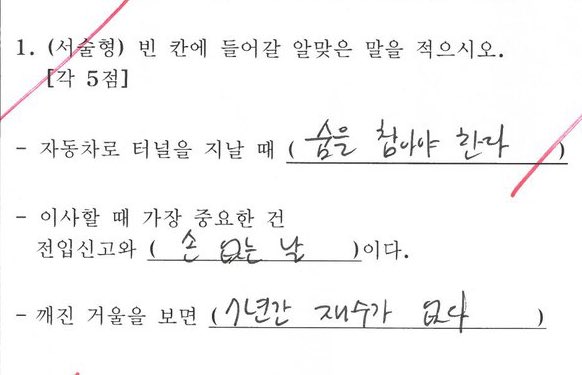 1. (서술형) 빈 칸에 들어갈 알맞은 말을 적으시오.
[각 5점]
- 자동차로 터널을 지날 때 ( 숨을 참아야 한다 )
- 이사할 때 가장 중요한 건
전입신고와 ( 손 없는 날 )이다.
- 깨진 거울을 보면 ( 7년간 재수가 없다 )